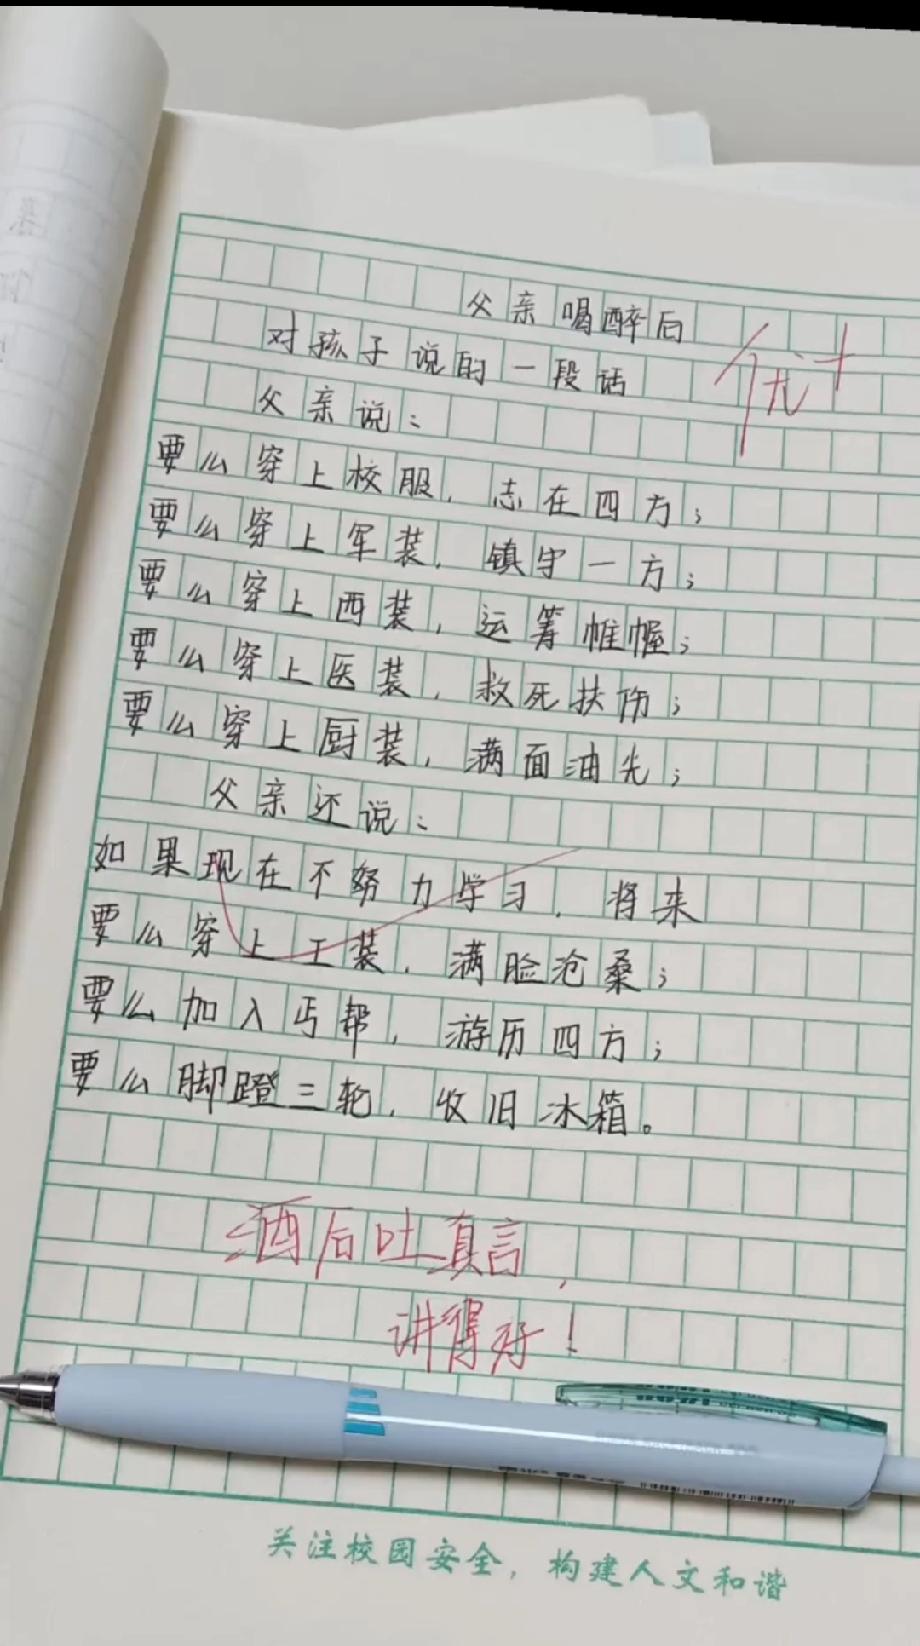 父亲喝醉后
对孩子说的一段话
优+
父亲说：
要么穿上校服，志在四方；
要么穿上军装，镇守一方；
要么穿上西装，运筹帷幄；
要么穿上医装，救死扶伤；
要么穿上厨装，满面油光；
父亲还说：
如果现在不努力学习，将来
要么穿上工装，满脸沧桑；
要么加入丐帮，游历四方；
要么脚蹬三轮，收旧冰箱。
酒后吐真言，
讲得好！
关注校园安全，构建人文和谐